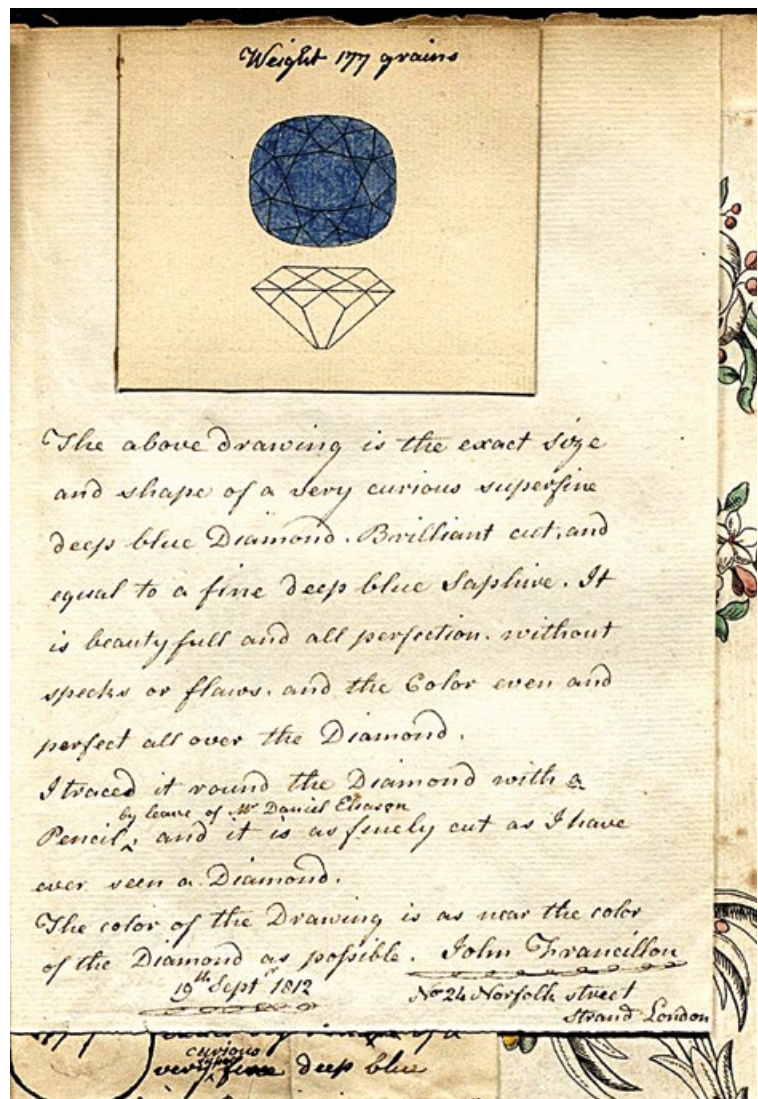 Weight 177 grains
The above drawing is the exact size
and shape of a very curious superfine
deep blue Diamond. Brilliant cut, and
equal to a fine deep blue Saphire. It
is beautyfull and all perfection. without
specks or flaws. and the Color even and
perfect all over the Diamond.
I traced it round the Diamond with a
by leave of Mr Daniel Eliason
Pencil, and it is as finely cut as I have
ever seen a Diamond.
The color of the Drawing is as near the color
of the Diamond as possible. John Francillon
19th Septr 1812
No 24 Norfolk street
Strand London
curious
very fine deep blue